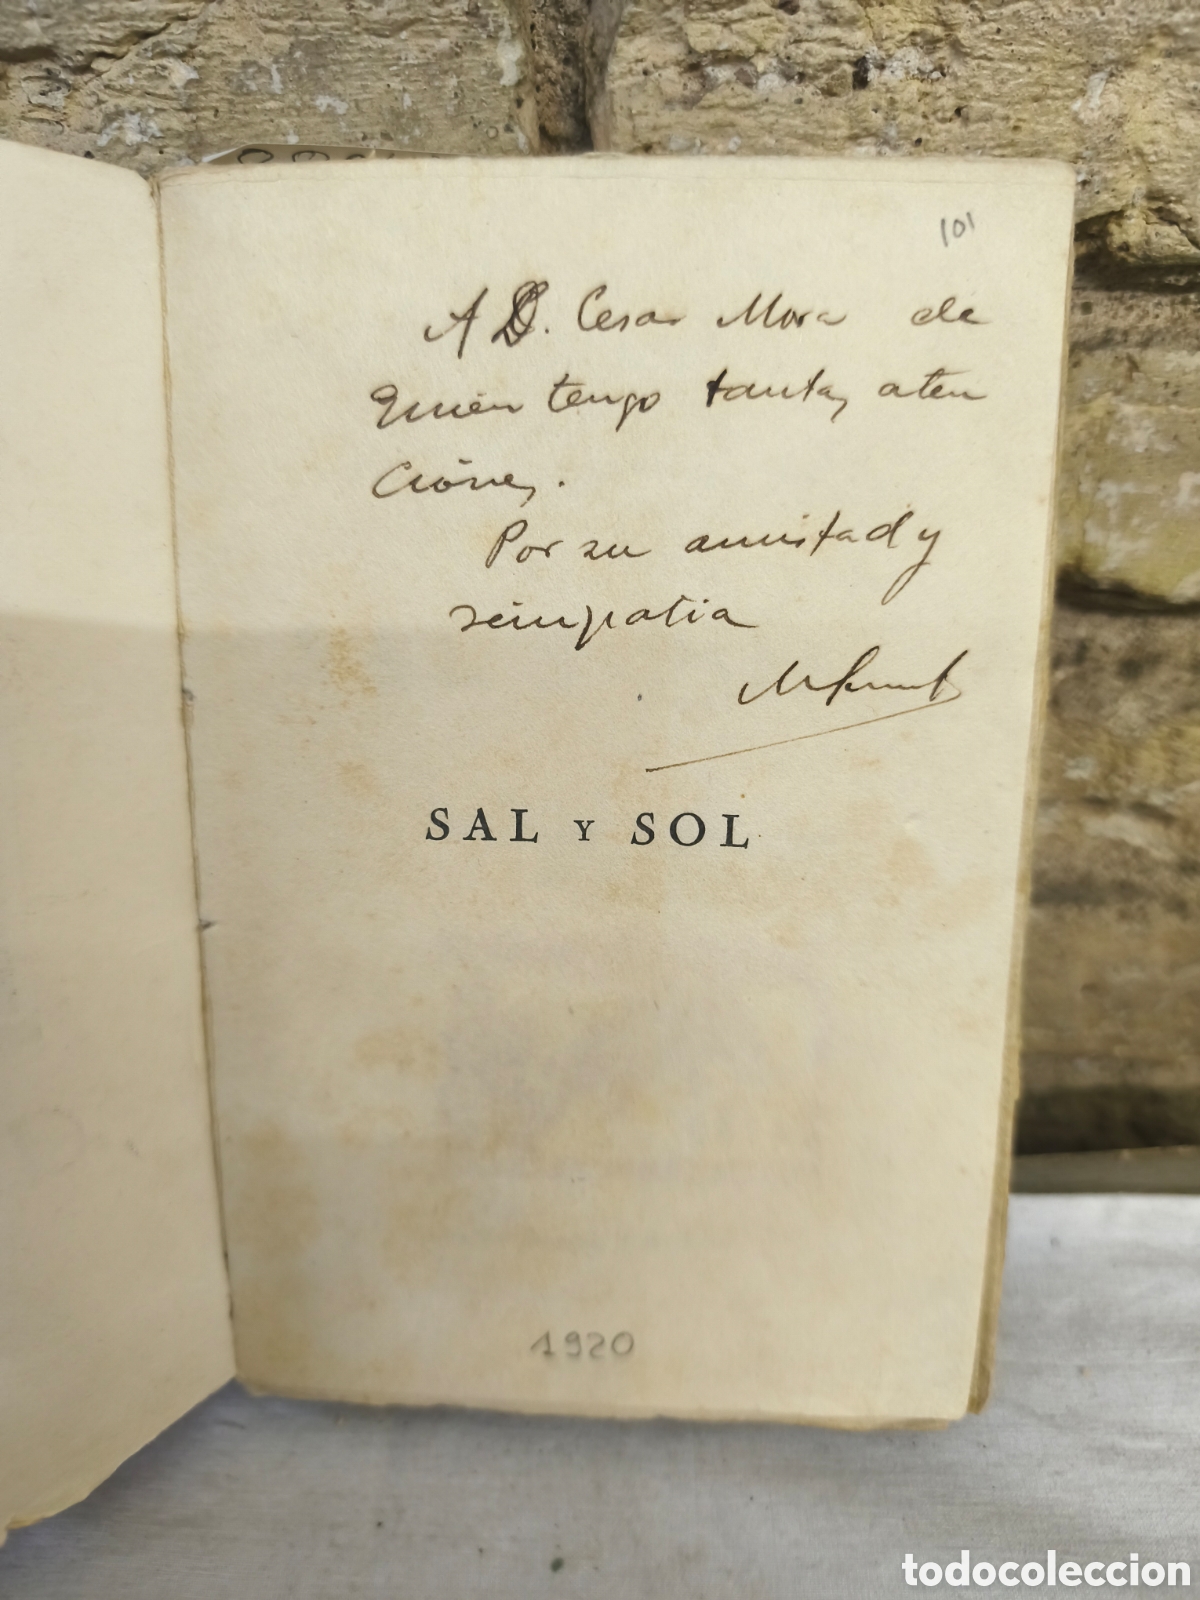 101
A D. Cesar Mora de
quien tengo tantas aten
ciones.
Por su amistad y
simpatia
SAL Y SOL
1920
todocoleccion